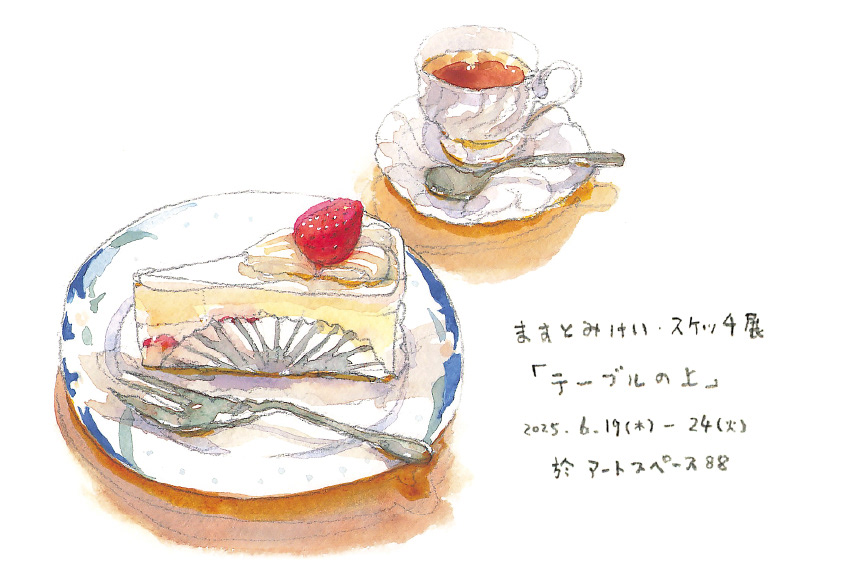 ますとみけい・スケッチ展
「テーブルの上」
2025.6.19(木)－24(火)
於 アートスペース88